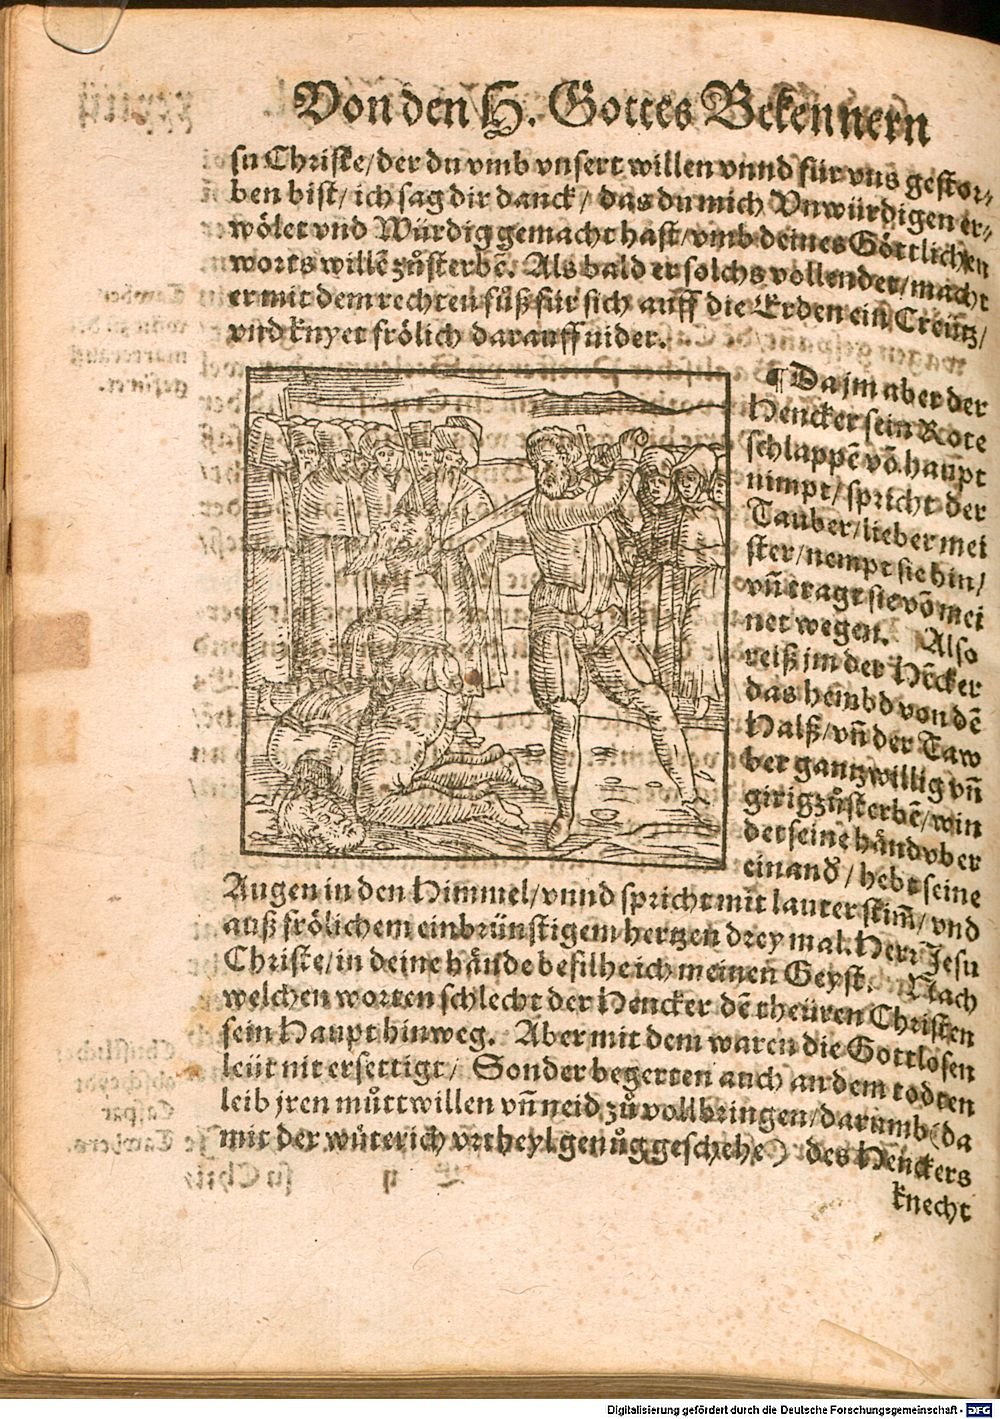 Von den H. Gottes Bekennern
su Christe/ der du vmb vnsert willen vnnd für vns gestor-
ben bist/ ich sag dir danck/ das du mich Vnwürdigen er-
wölet vnd Würdig gemacht hast/ vmb deines Göttlichen
worts willē zůsterbē. Als bald er solchs vollendet/ macht
er mit dem rechten fůß für sich auff die Erden ein Creütz/
vnd knyet frölich darauff nider.
¶ Da jm aber der
Hencker sein Rote
schlappē vō haupt
nimpt/ spricht der
Tauber/ lieber mei
ster/ nempt sie hin/
vñ tragt sie vō mei
net wegen. Also
reiß jm der Hēcker
das hembd von dē
Halß/ vñ der Taw
ber gantz willig vñ
girig zůsterbē/ win
det seine händ vber
einand/ hebt seine
Augen in den Himmel/ vnnd spricht mit lauter stim̄/ vnd
auß frölichem einbrünstigem hertzen drey mal. Herr Jesu
Christe/ in deine hände befilhe ich meinen Geyst. Nach
welchen worten schlecht der Hencker dē theüren Christen
sein Haupt hinweg. Aber mit dem waren die Gottlosen
leüt nit ersettigt/ Sonder begerten auch an dem todten
leib jren můttwillen vñ neid zů vollbringen/ darumb (da
mit der wůterich vrtheyl genůg geschehe) des Henckers
knecht
Digitalisierung gefördert durch die Deutsche Forschungsgemeinschaft - DFG